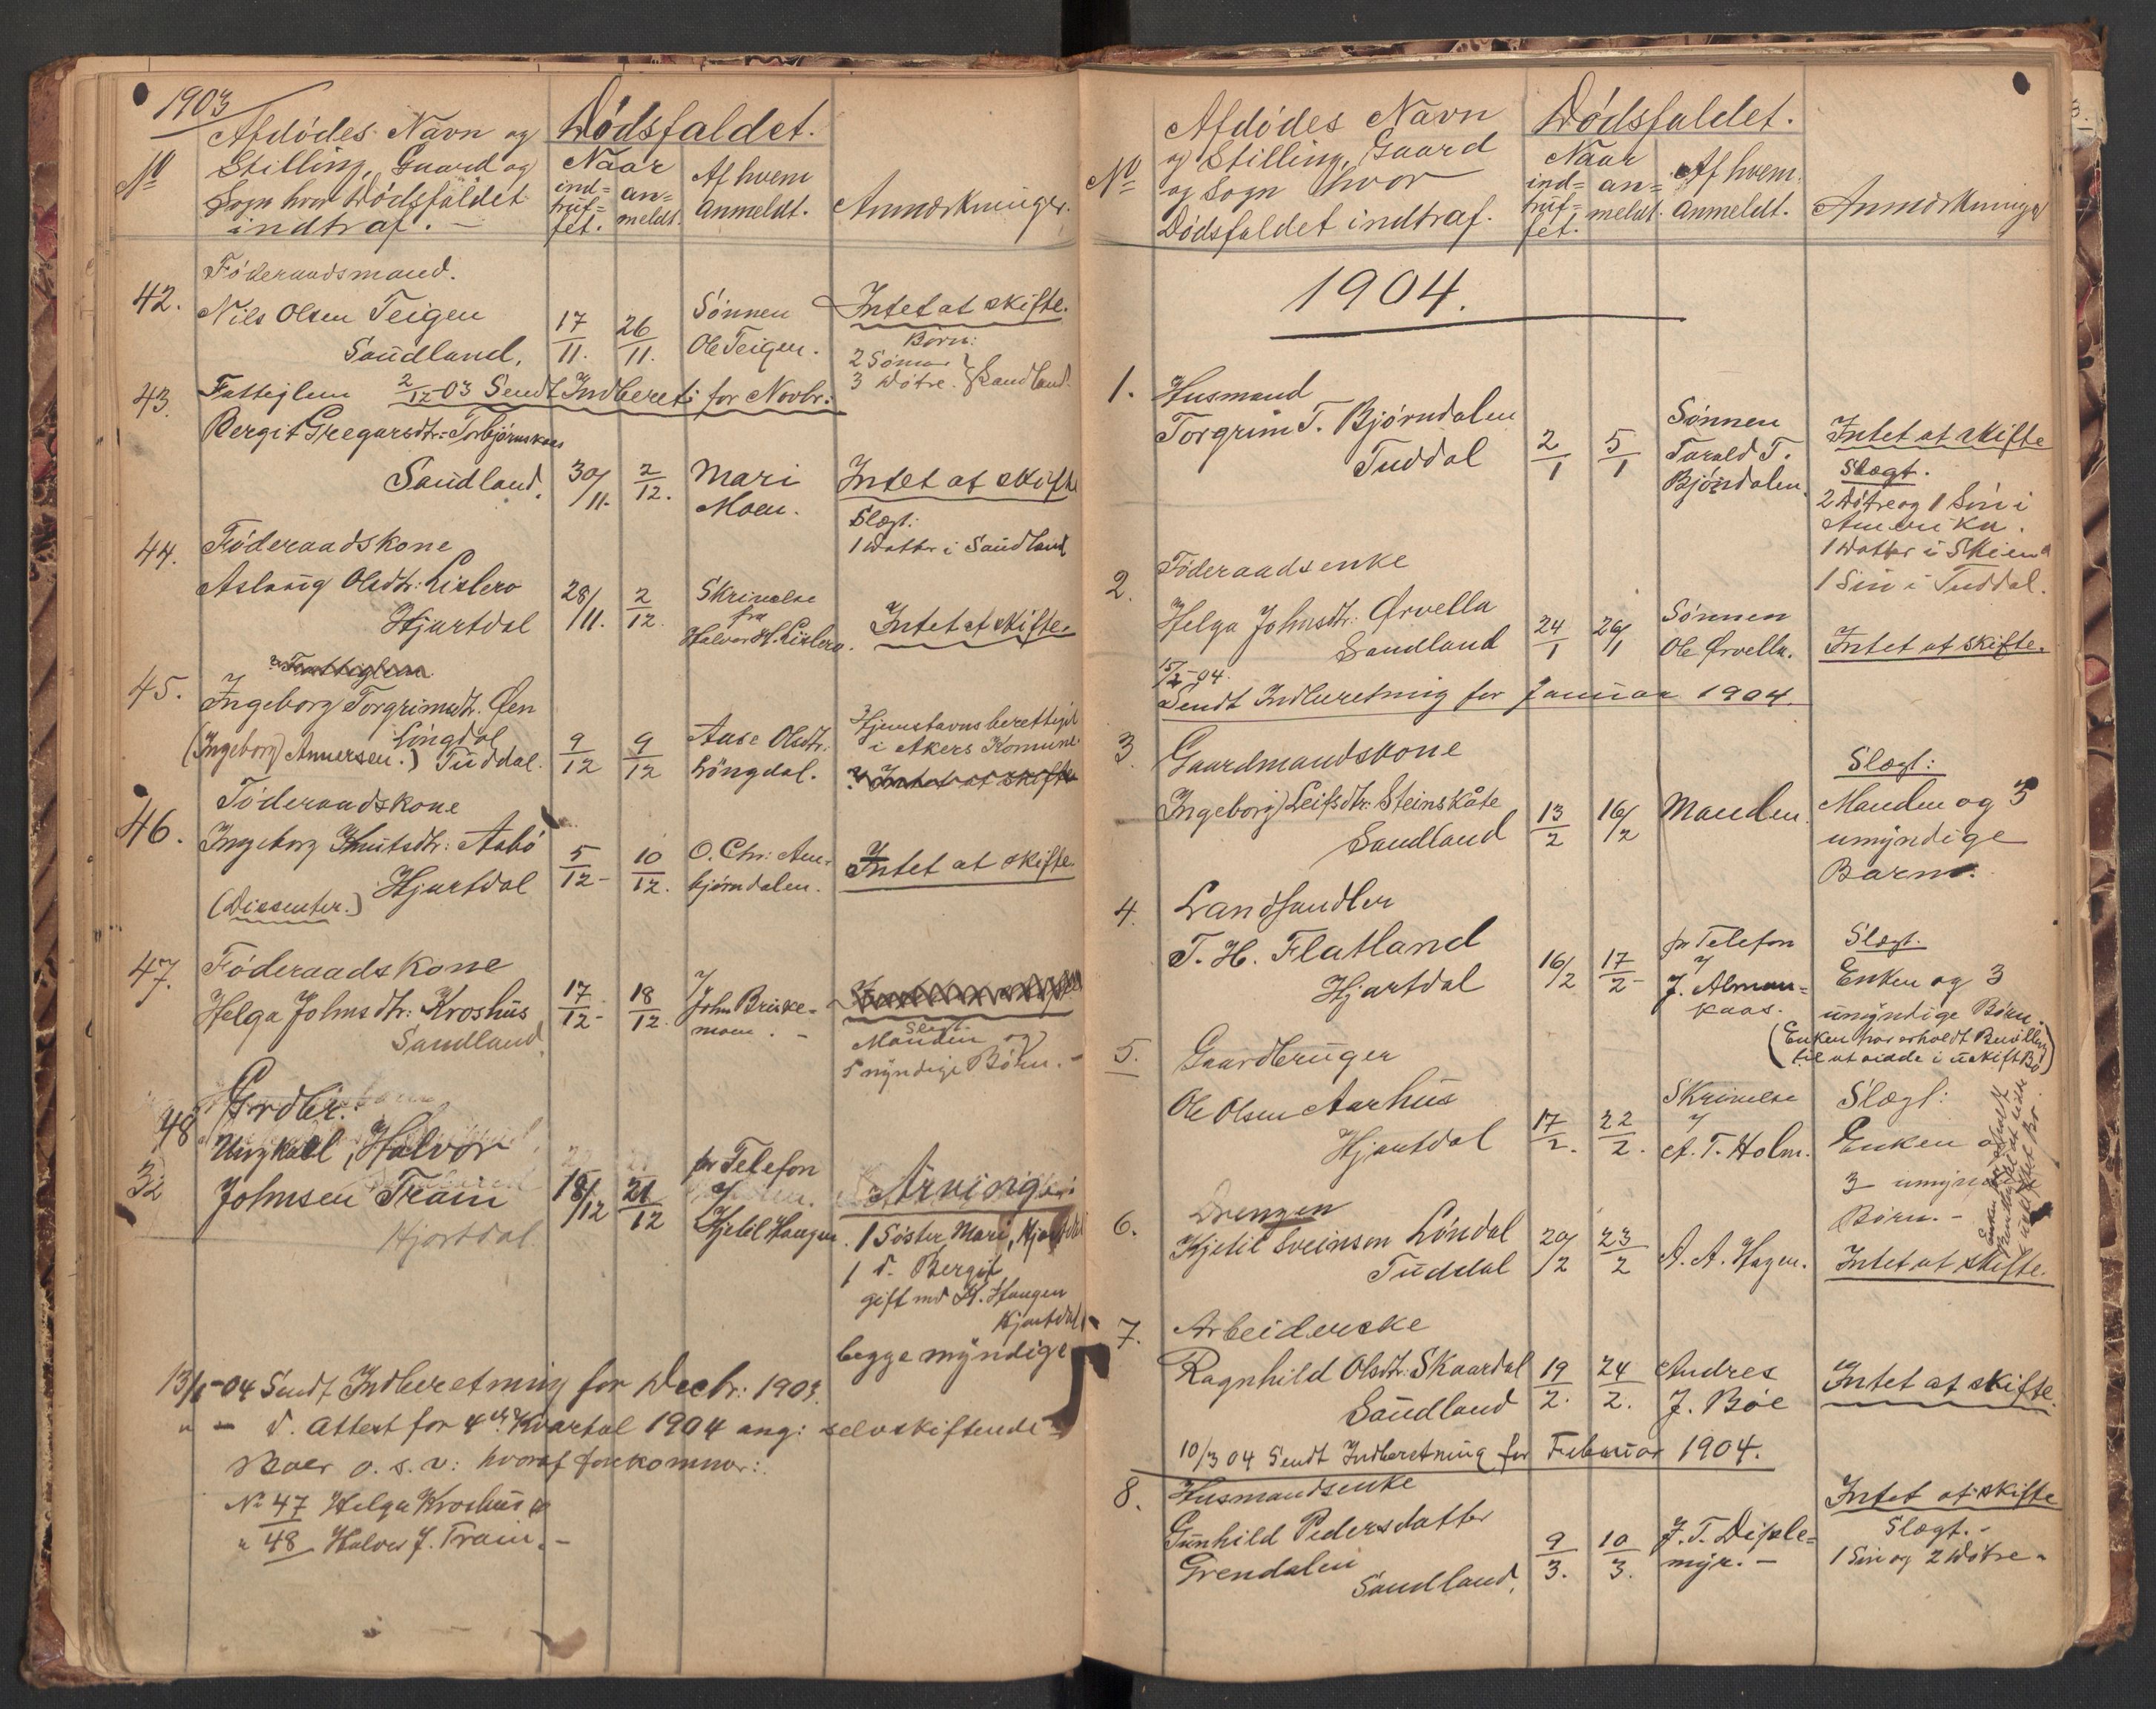 1903
Afdödes Navn og
Stilling, Gaard og
Sogn hvor Dödsfaldet
indtraf. —
No
Dödsfaldet.
Naar
ind=
truf=
fet.
an=
meldt.
Af hvem
Anmeldt.
Anmærkninger.
Föderaadsmand.
42. Nils Olsen Teigen
Saudland.
17/11. 26/11.
Sönnen
Ole Teigen.
Intet at skifte.
Börn:
2 Sönner
3 Døtre. } Saudland.
43. Fattiglem 2/12-03 Sendt Indberet: for Novbr:
Bergit Gregarsdtr: Torbjörnskaas
Saudland. 30/11. 2/12. Mari
Moen.
Intet at skifte
Slægt:
1 Datter i Saudland
44. Föderaadskone
Aslaug Olsdtr: Lislero
Hjartdal 28/11. 2/12.
Skrivelse
fra
Halvor H. Lislero.
Intet at skifte.
Fattiglem
45. Ingeborg Torgrimsdtr. Øen
Löngdal
(Ingeborg Annersen.) Tuddal. 9/12 9/12
Aase Olsdtr:
Löngdal.
Hjemstavnsberettiget
i Akers Komune
Intet at skifte
46. Föderaadskone
Ingeborg Knutsdtr: Aabö
Hjartdal
(Dissenter.)
5/12- 10/12.
O. Chr: Am=
bjørndalen.
Intet at skifte
47. Föderaadskone
Helga Johnsdtr: Kroshus
Saudland
17/12- 18/12.
John Briske=
moen. -
Slægt.
Manden og
5 myndige Börn. -
48 Grdbr.
Ungkarl, Halvor
32 Johnsen Træin
Hjartdal.
18/12 21/12
pr Telefon
Kjetil Haugen.
Arvinger:
1 Söster, Mari, Hjartdal
1 d. Bergit
gift med K. Haugen
Hjartdal
begge myndige
13/1-04 Sendt Indberetning for Decbr: 1903.
" - d. Attest for 4de Kvartal 1904 ang: selvskiftende
Boer o. s. v: hvoraf forekommer:
No 47 Helga Kroshus og
" 48 Halvor J. Træin. -
No
Afdödes Navn
og Stilling, Gaard
og Sogn hvor
Dödsfaldet indtraf.
Dödsfaldet.
Naar
ind=
truf=
fet.
an=
meldt.
Af hvem
Anmeldt.
Anmærkninger
1904.
1. Husmand
Torgrim T. Bjørndalen
Tuddal
2/1 5/1
Sönnen
Tarald T.
Bjöndalen.
Intet at skifte
Slægt.
2 Døtre og 1 Sön i
Amerika.
1 Datter i Skien
1 Sön i Tuddal.
2. Föderaadsenke
Helga Johnsdtr: Ørvella
Saudland
24/1 26/1
Sönnen
Ole Ørvella.
Intet at skifte.
15/2-04.
Sendt Indberetning for Januar 1904.
3. Gaardmandskone
Ingeborg Leifsdtr: Steinskåte
Saudland
13/2 16/2 Manden.
Slægt:
Manden og 3
umyndige
Barn.
4. Landhandler
T. H. Flatland
Hjartdal
16/2 17/2-
pr Telefon
J. Alman=
kaas.
Slægt.
Enken og 3
umyndige Börn.
(Enken har erholdt Bevilling
til at sidde i uskift Bo)
5. Gaardbruger
Ole Olsen Aarhus
Hjartdal
17/2. 22/2.
Skrivelse
A. T. Holm.
Slægt:
Enken og
3 umyndige
Börn. -
6. Drengen
Kjetil Sveinsøn Löndal
Tuddal
20/2 23/2 A. A. Hagen. Intet at skifte.
7. Arbeiderske
Ragnhild Olsdtr. Skaardal
Saudland
19/2. 24/2.
Andres
J. Böe
Intet at skifte.
10/3 04 Sendt Indberetning for Februar 1904.
8. Husmandsenke
Gunhild Pedersdatter
Grendalen
Saudland.
9/3. 10/3.
J. T. Disple=
myr. -
Intet at skifte
Slægt. -
1 Sön og 2 Døtre -